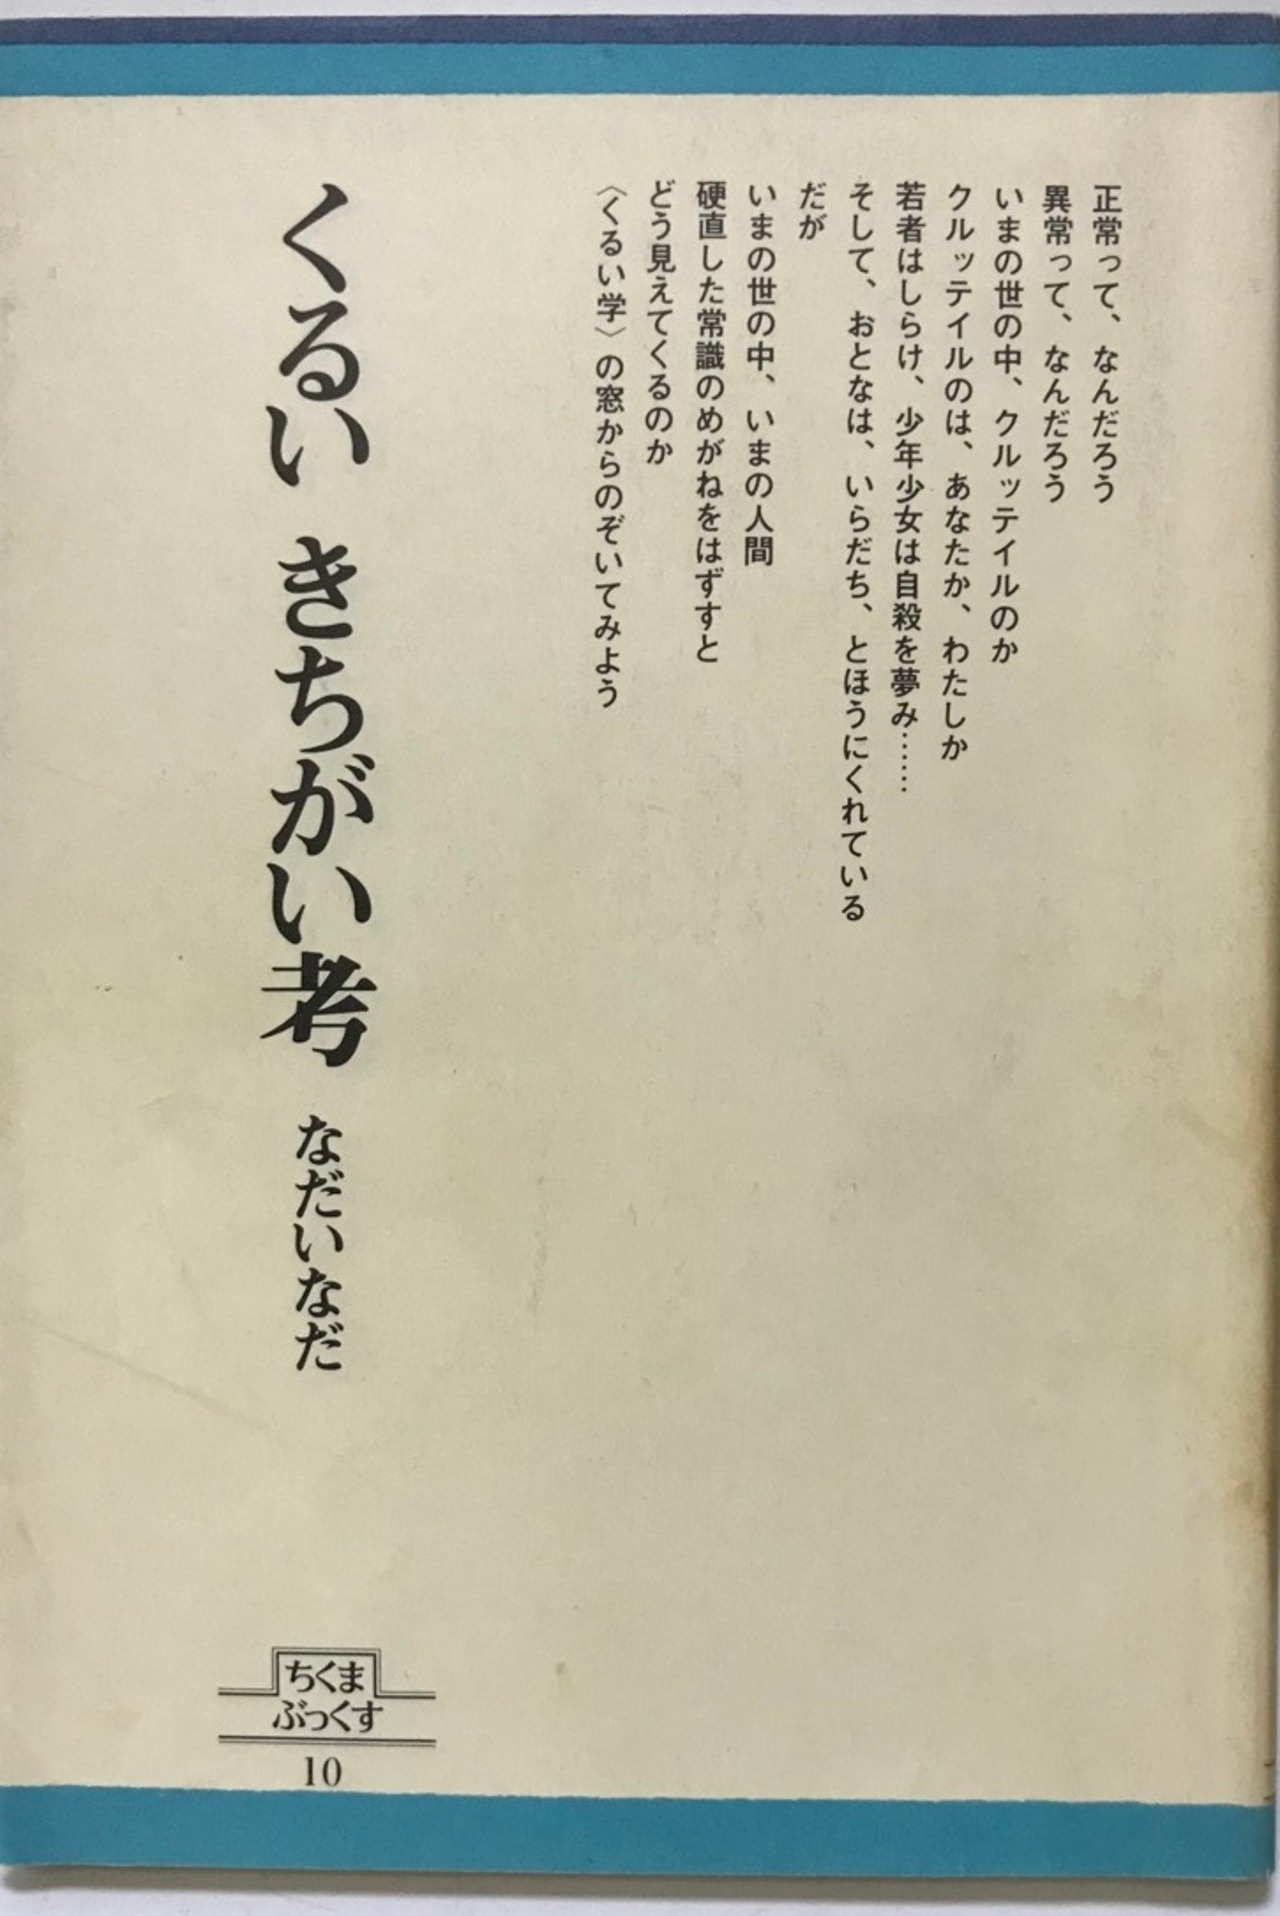 正常って、なんだろう
異常って、なんだろう
いまの世の中、クルッテイルのか
クルッテイルのは、あなたか、わたしか
若者はしらけ、少年少女は自殺を夢み……
そして、おとなは、いらだち、とほうにくれている
だが
いまの世の中、いまの人間
硬直した常識のめがねをはずすと
どう見えてくるのか
〈くるい学〉の窓からのぞいてみよう
くるい きちがい考 なだいなだ
ちくま
ぶっくす
10